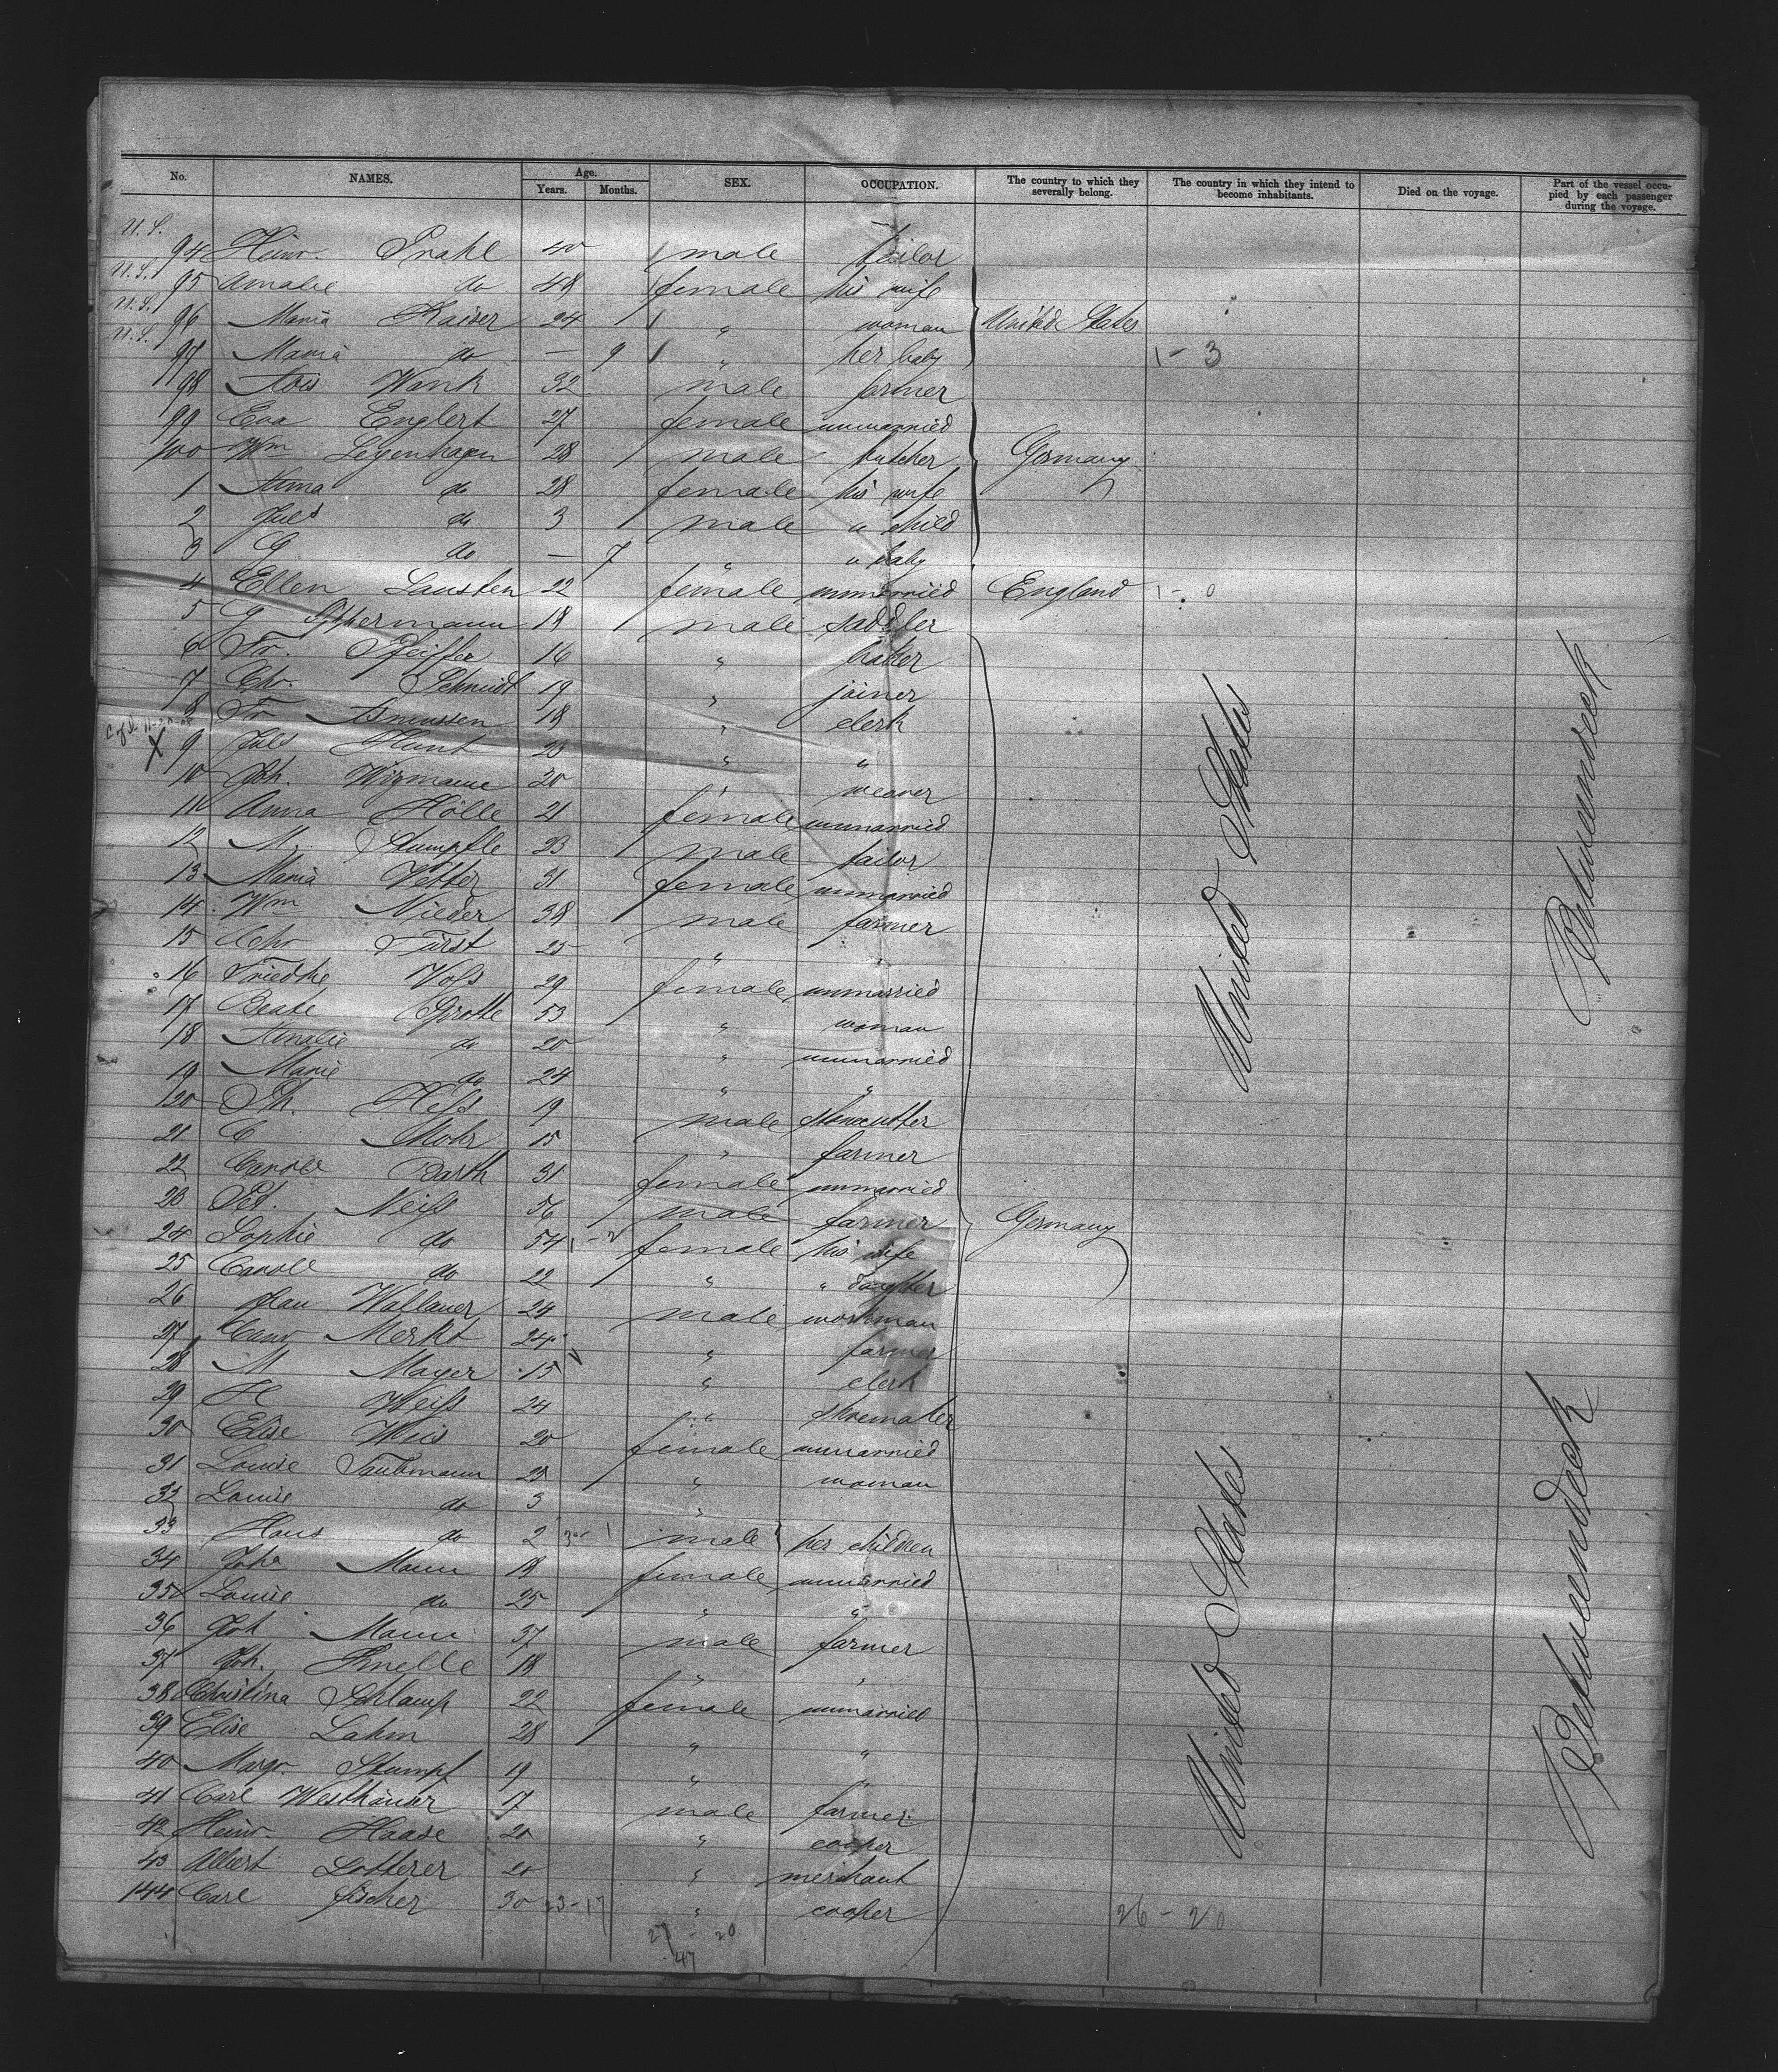 No. NAMES. Age. Years. Months. SEX. OCCUPATION. The country to which they severally belong. The country in which they intend to become inhabitants. Died on the voyage. Part of the vessel occupied by each passenger during the voyage.
U.S. 94 Heinr. Prahl 40 male tailor
U.S. 95 Amalie do 48 female his wife
U.S. 96 Maria Kaiser 24 " woman United States
U.S. 97 Maria do — 9 " her baby 1 - 3
98 Alois Wank 32 male farmer
99 Eva Englert 27 female unmarried
100 Wm Legenhagen 28 male butcher Germany
1 Anna do 28 female his wife
2 Juls do 3 male " child
3 G do — 7 " " baby
4 Ellen Lausten 22 female unmarried England 1 - 0
5 G Oppermann 18 male saddler
6 Fr. Pfeiffer 16 " baker
7 Chr. Schmidt 19 " joiner
8 Fr Asmussen 18 " clerk
X 9 Juls Hunt 28 " "
10 Joh. Wizmann 20 " weaver
11 Anna Hölle 21 female unmarried
12 M. Stumpfle 23 male tailor
13 Maria Vetter 31 female unmarried
14 Wm Nieder 38 male farmer
15 Chr Fürst 25 " "
16 Friedke Voss 29 female unmarried
17 Beate Grotte 53 " woman
18 Amalie do 20 " unmarried
19 Marie do 24 " "
120 Ph. Hess 19 male stonecutter
21 C Mohr 15 " farmer
22 Carole Barth 31 female unmarried
23 Pet. Neiss 56 male farmer Germany
24 Sophie do 54 female his wife
25 Carole do 22 " " daughter
26 Wallauer 24 male workman
27 Merkt 24 " farmer
28 M Mayer 15 " clerk
29 H Weiss 24 " shoemaker
30 Elise Wies 20 female unmarried
31 Louise Taubmann 25 " woman
32 Louise do 3 "
33 Hans do 2 male her children
34 Joha Mann 18 female unmarried
35 Louise do 25 " "
36 Joh Mann 37 male farmer
37 Joh. Knelle 18 " "
38 Christina Schlamp 22 female unmarried
39 Elise Lahm 28 " "
40 Margr. Stumpf 19 " "
41 Carl Westhäuser 17 male farmer
42 Heinr. Haase 20 " cooper
43 Albert Lotterer 20 " merchant
144 Carl Fischer 30 23-17 " cooper 26 - 20
27 - 20
47
United States
United States
Betweendeck
Betweendeck